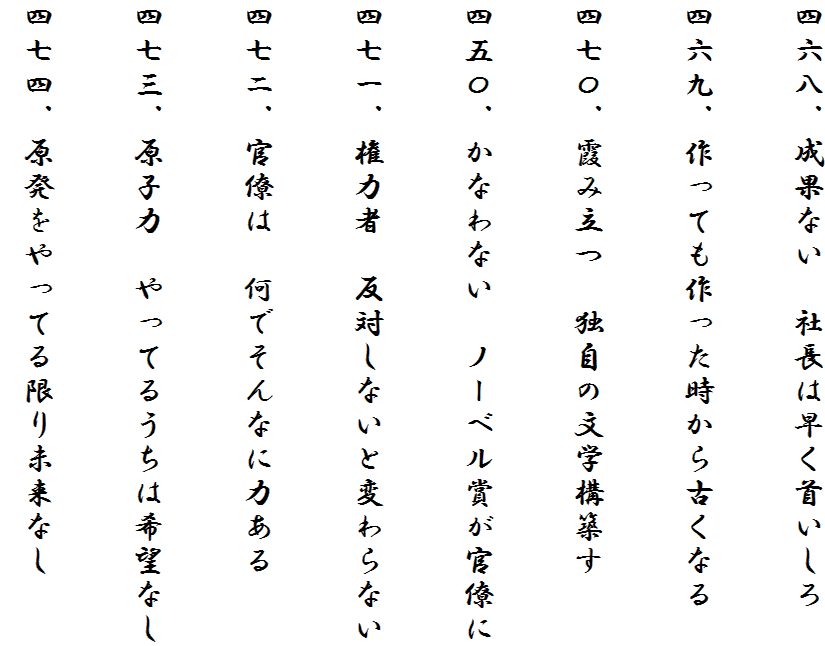 四六八、成果ない　社長は早く首いしろ
四六九、作っても作った時から古くなる
四七〇、霞み立つ　独自の文学構築す
四五〇、かなわない　ノーベル賞が官僚に
四七一、権力者　反対しないと変わらない
四七二、官僚は　何でそんなに力ある
四七三、原子力　やってるうちは希望なし
四七四、原発をやってる限り未来なし